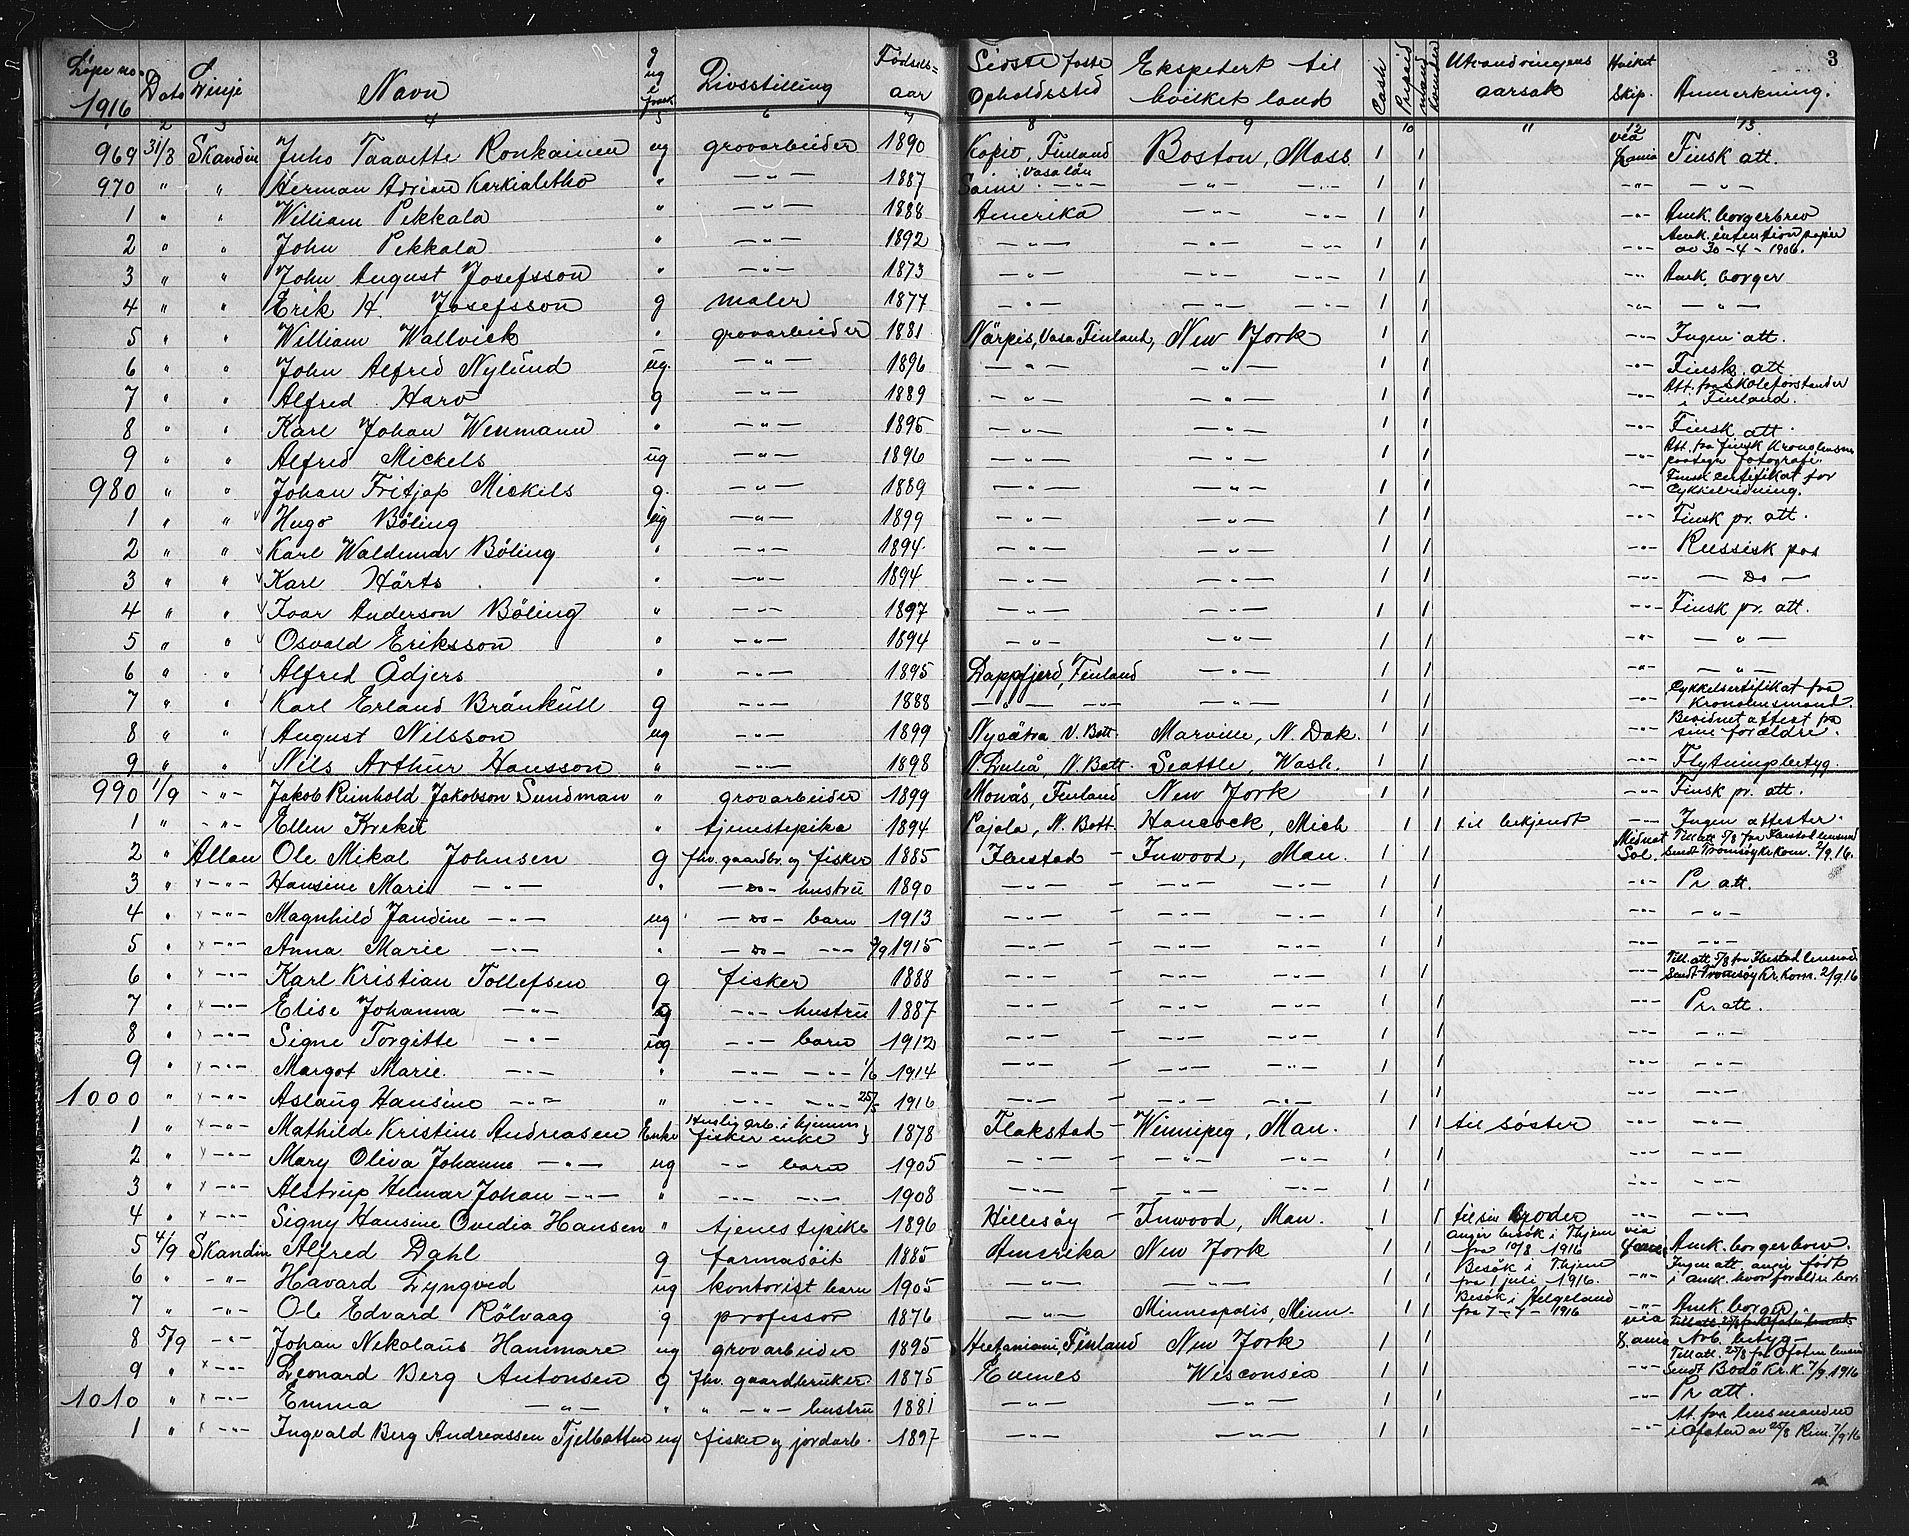 3
Løpe no. 1916 | Dato | Linje | Navn | g ug e | Livsstilling | Fødsels-aar | Sidste faste Opholdssted | Ekspedert til hvilket land | Cash | Prepaid | mand | kvinder | Utvandringens aarsak | Hvilket Skip. | Anmerkning.
1 2 3 4 5 6 7 8 9 10 11 12 13
969 31/8 Skandin Juho Taavette Ronkainen ug grovarbeider 1890 Kopio, Finland Boston, Mass 1 1 via Finsk att.
970 " " Herman Adrian Karkialetho " —"— 1887 Vasa län —"— —"— 1 1 —"— —"—
1 " " William Pekkala " —"— 1888 Amerika —"— —"— 1 1 —"— Amk. borgerbrev
2 " " John Pekkala " —"— 1892 —"— —"— —"— 1 1 —"— Amk. intention papir av 30-4-1906.
3 " " John August Josefsson " —"— 1873 —"— —"— —"— 1 1 —"— Amk. borger
4 " " Erik H. Josefsson g maler 1877 —"— —"— —"— 1 1 —"— —"—
5 " " William Wallvick " grovarbeider 1881 Närpis, Vasa Finland, New York 1 1 —"— Ingen att.
6 " " John Alfred Nylund ug. —"— 1896 —"— —"— 1 1 —"— Finsk att
7 " " Alfred Harv g —"— 1889 —"— —"— 1 1 —"— Att. fra skoleforstander i Finland.
8 " " Karl Johan Wenmann " —"— 1895 —"— —"— 1 1 —"— Finsk att.
9 " " Alfred Mickels ug —"— 1896 —"— —"— 1 1 —"— Att. fra finsk paategn fotografi.
980 " " Johan Fritjof Mickels g. —"— 1889 —"— —"— 1 1 —"— Finsk certifikat for Cykkelridning.
1 " " Hugo Böling ug —"— 1899 —"— —"— 1 1 —"— Finsk pr. att.
2 " " Karl Waldemar Böling " —"— 1894 —"— —"— 1 1 —"— Russisk pas
3 " " Karl Härts " —"— 1894 —"— —"— 1 1 —"— — Do —
4 " " Ivar Anderson Böling " —"— 1897 —"— —"— 1 1 —"— Finsk pr. att.
5 " " Osvald Eriksson " —"— 1894 —"— —"— 1 1 —"— —"—
6 " " Alfred Ådjers " —"— 1895 Dappfjerd, Finland —"— 1 1 —"— —"—
7 " " Karl Erland Bränkull g —"— 1888 —"— —"— —"— 1 1 —"— Cykkelsertifikat fra Kronolensmand.
8 " " August Nilsson ug —"— 1899 Nysätra V. Bott. Marville, N. Dak. 1 1 —"— Besidnet attest fra sine forældre.
9 " " Nils Arthur Hansson " —"— 1898 N. Luleå, N. Bott. Seattle, Wash. 1 1 —"— Flytningsbetyg.
990 1/9 —"— Jakob Reinhold Jakobson Sundman " grovarbeider 1899 Monäs, Finland New York 1 1 —"— Finsk pr. att.
1 " —"— Ellen Kreku " tjenestepike 1894 Pajala, N. Bott. Hancock, Mich 1 1 til bekjendt —"— Ingen attester
2 " Allan Ole Mikal Johnsen g fhv. gaardbr. og fisker 1885 Ibestad — Inwood, Man. 1 1 Midnat Sol. Till att. 5/8 fra Ibestad lensmd Sendt Tromsøy Kr. kom. 2/9.16.
3 " x —"— Hansine Marie —"— " — Do — hustru 1890 —"— — —"— —"— 1 1 —"— Pr att.
4 " x —"— Magnhild Jandine —"— ug — Do — barn 1913 —"— — —"— —"— 1 1 —"— —"—
5 " x —"— Anna Marie —"— " — Do — —"— 3/9 1915 —"— — —"— —"— 1 1 —"— —"—
6 " x —"— Karl Kristian Tollefsen g fisker 1888 —"— — —"— —"— 1 1 —"— Till att. 5/8 fra Ibestad lensmd Sendt Tromsøy Kr. Kom. 2/9 16
7 " x —"— Elise Johanna —"— g —"— hustru 1887 —"— — —"— —"— 1 1 —"— Pr. att.
8 " x —"— Signe Torgitte —"— ug —"— barn 1912 —"— — —"— —"— 1 1 —"— —"—
9 " x —"— Margot Marie —"— " —"— —"— 1/6 1914 —"— — —"— —"— 1 1 —"— —"—
1000 " x —"— Aslaug Hansine —"— " —"— —"— 25/5 1916 —"— — —"— —"— 1 1 —"— —"—
1 " x —"— Mathilde Kristine Andreasen Enke Huslig arb. i hjemm fisker enke } 1878 Flakstad — Winnipeg, Man. 1 1 til søster —"— —"—
2 " x —"— Mary Oliva Johanne —"— ug —"— barn 1905 —"— — —"— —"— 1 1 —"— —"—
3 " x —"— Alstrup Helmar Johan —"— " —"— —"— 1908 —"— — —"— —"— 1 1 —"— —"—
4 " x —"— Signy Hansine Ovedia Hansen " tjenestepike 1896 Hillesøy — Inwood, Man. 1 1 til sin broder —"— —"—
5 4/9 Skandin Alfred Dahl g farmasöit 1885 Amerika New York 1 1 anger besøk i Thjem fra 10/8 1916 via Amk. borgerbrev.
6 " —"— Havard Lyngved ug kontorist barn 1905 —"— —"— 1 1 Besøk i Thjem fra 1 juli 1916. —"— Ingen att angir født i amk. hvor foreldre bor
7 " —"— Ole Edvard Rölvaag g professor 1876 —"— Minneapolis, Minn. 1 1 Besøk i Helgeland fra 7-7-1916 —"— Amk borger.
8 5/9 —"— Johan Nikolaus Hammare ug grovarbeider 1895 Finland New York 1 1 via Arb. betyg
9 " x —"— Leonard Berg Antonsen g fhv. gaardbruker 1875 Evenes Wisconsin 1 1 —"— Till att. 25/8 fra Ofoten lensmd Sendt Bodö Kr. K. 7/9 1916
1010 " x —"— Emma —"— " " —"— hustru 1881 —"— —"— 1 1 —"— Pr att.
1 " x —"— Ingvald Berg Andreassen Tjelbotten ug fisker og jordarb. 1897 —"— —"— 1 1 —"— At. fra lensmanden i Ofoten av 25/8 7/9-16